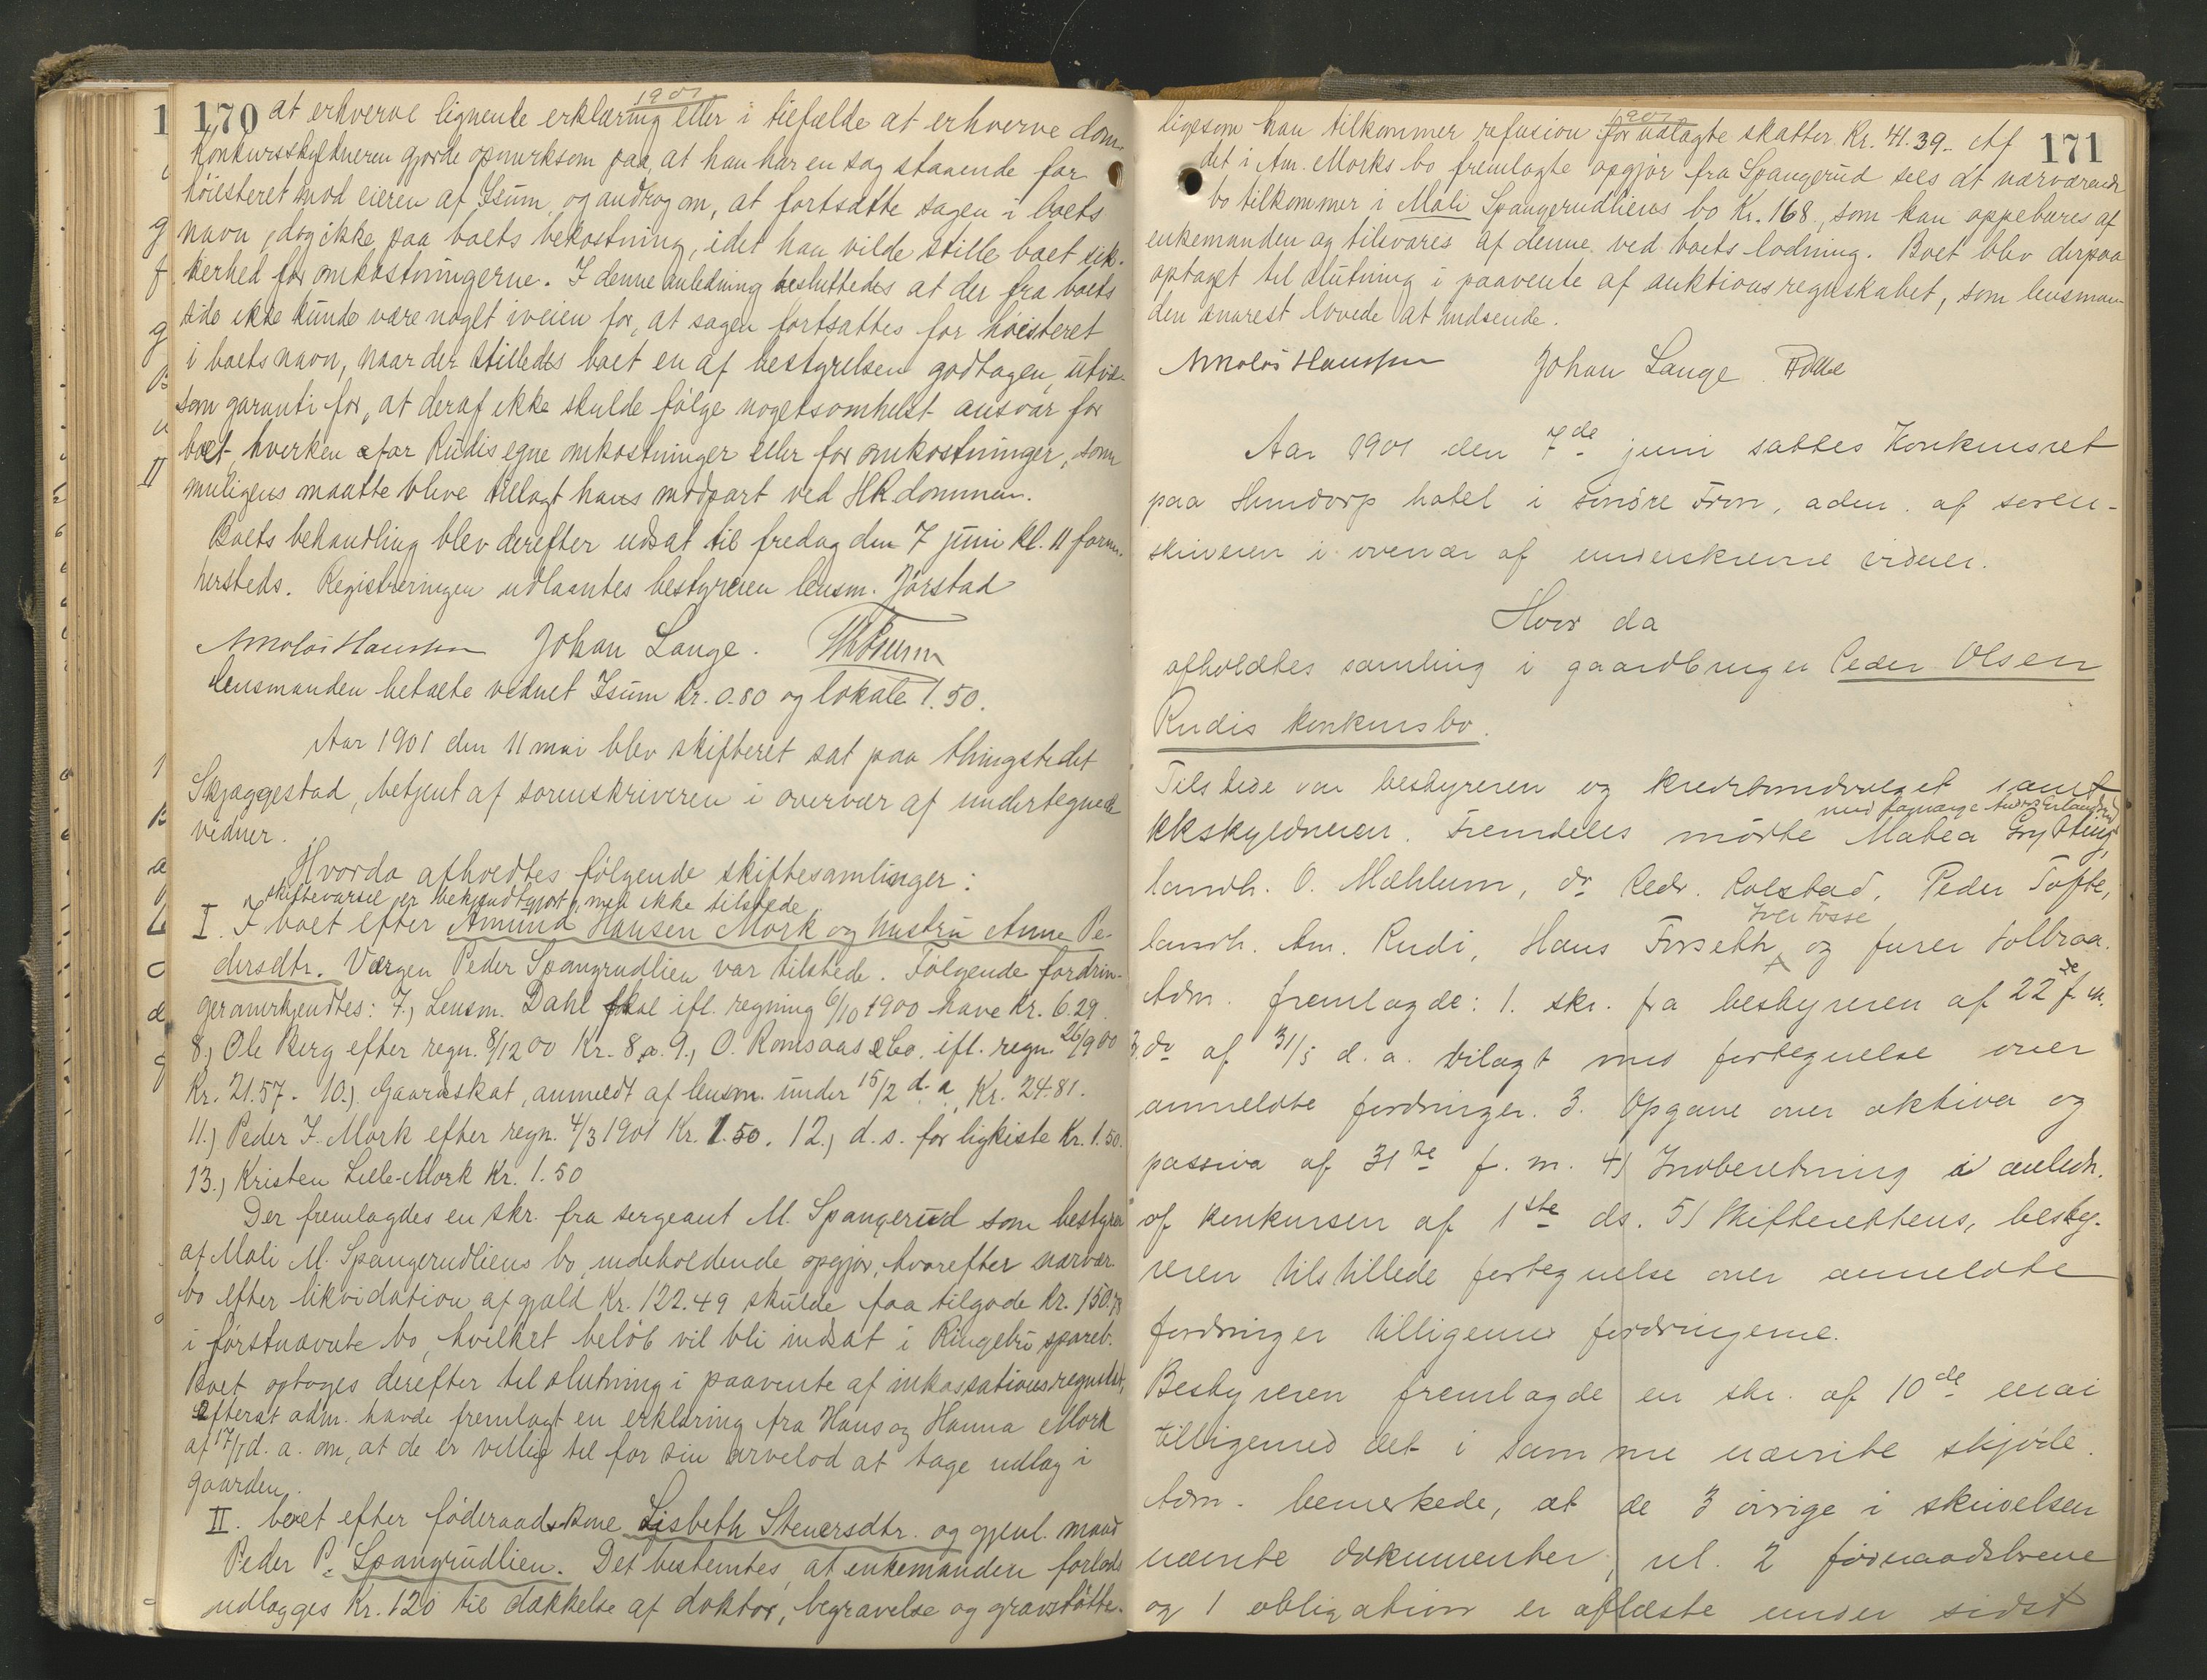 1901
170 at erhverve lignende erklæring eller i tilfælde at erhverve dom.
Konkursskyldneren gjorde opmerksom paa, at han har en sag staaende for
höiesteret mod eieren af Isum og androg om, at fortsætte sagen i boets
navn, dog ikke paa boets bekostning, idet han vilde stille boet sik-
kerhed for omkostningerne. I denne anledning besluttedes at der fra boets
side ikke kunde være noget iveien for, at sagen fortsattes for höiesteret
i boets navn, naar der stilledes boet en af bestyrelsen godtagen, utvi-
som garanti for, at deraf ikke skulde fölge nogetsomhelst ansvar for
boet hverken for Rudis egne omkostninger eller for omkostninger, som
muligens maatte blive tillagt hans modpart ved HRdommen.
Boets behandling blev derefter udsat til fredag den 7 juni kl. 11 form.
hersteds. Registreringen udlaantes bestyreren lensm. Jörstad
Nikolai Hanssen Johan Lange.
lensmanden betalte vidnet Isum kr. 0.80 og lokale 1.50.
Aar 1901 den 11 mai blev skifteret sat paa thingstedet
Skjæggestad, betjent af sorenskriveren i overvær af undertegnede
vidner.
Hvorda afholdtes fölgende skiftesamlinger:
skiftevarsel er bekjendtgjort, men ikke tilstede
I. I boet efter Amund Hansen Mork og hustru Anne Pe-
dersdtr. Værgen Peder Spangrudlien var tilstede. Fölgende fordrin-
ger anerkjendtes: 7.) Lensm. Dahl skal ifl. regning 6/10 1900 have kr. 6.29.
8.) Ole Berg efter regn. 8/12 00 Kr. 8,0. 9.) O. Romsaas & Co. ifl. regn. 26/9 00
Kr. 21.57. 10.) Gaardskat, anmeldt af lensm. under 15/2 d.a. Kr. 24.81.
11.) Peder I. Mork efter regn. 4/3 1901 Kr. 1.50. 12.) d.s. for ligkiste Kr. 1.50.
13.) Kristen Lille-Mork Kr. 1.50
Der fremlagdes en skr. fra sergeant M. Spangerud som bestyrer
af Mali M. Spangerudliens bo, indeholdende opgjör, hvorefter nærvær.
bo efter likvidation af gjæld Kr. 122.49 skulde faa tilgode Kr. 150.78
i förstnævnte bo, hvilket belöb vil bli indsat i Ringebu spareb.
Boet optoges derefter til slutning i paavente af inkassationsregnskbt,
efterat adm. havde fremlagt en erklæring fra Hans og Hanna Mork
af 17/1 d.a. om, at de er villig til for sin arvelod at tage udlæg i
gaarden.
II. boet efter föderaadskone Lisbeth Steuersdtr. og gjenl. mand
Peder P. Spangrudlien. Det bestemtes, at enkemanden forlods
udlægges Kr. 120 til dækkelse af doktor, begravelse og gravstötte.
1901
171
ligesom han tilkommer refusion for udlagte skatter Kr. 41.39. Af
det i Am. Morks bo fremlagte opgjör fra Spangerud sees at nærværende
bo tilkommer i Mali Spangerudliens bo Kr. 168, som kan oppebæres af
enkemanden og tilsvares af denne ved boets lodning. Boet blev derpaa
optaget til slutning i paavente af auktionsregnskabet, som lensman-
den snarest lovede at indsende.
Nikolai Hanssen Johan Lange
Aar 1901 den 7de juni sattes Konkursret
paa Hundorp hotel i söndre Fron, adm. af soren-
skriveren i overvær af underskrevne vidner.
Hvor da
afholdtes samling i gaardbruger Peder Olsen
Rudis konkursbo.
Tilstede var bestyreren og kreditorudvalget samt
med lagværge
kkskyldneren. Fremdeles mödte Mathea Grytting,
landh. O. Mæhlum, do Peder Kolstad, Peder Tofte,
Iver Fosse
landh. Am. Rudi, Hans Forseth og furer Solbraa.
Adm. fremlagde: 1. skr. fra bestyreren af 22de f.m.
2. do af 31/5 d.a. bilagt med fortegnelse over
anmeldte fordringer. 3. Opgave over aktiva og
passiva af 31te f.m. 4) Indberetning i anledn.
af konkursen af 1ste ds. 5) Skifterettens, besty-
reren tilstillede fortegnelse over anmeldte
fordringer tilligemed fordringerne.
Bestyreren fremlagde en skr. af 10de mai
tilligemed det i samme nævnte skjöde.
Adm. bemerkede, at de 3 övrige i skrivelsen
nævnte dokumenter, nl. 2 föderaadsbreve
og 1 obligation er aflæste under sidst